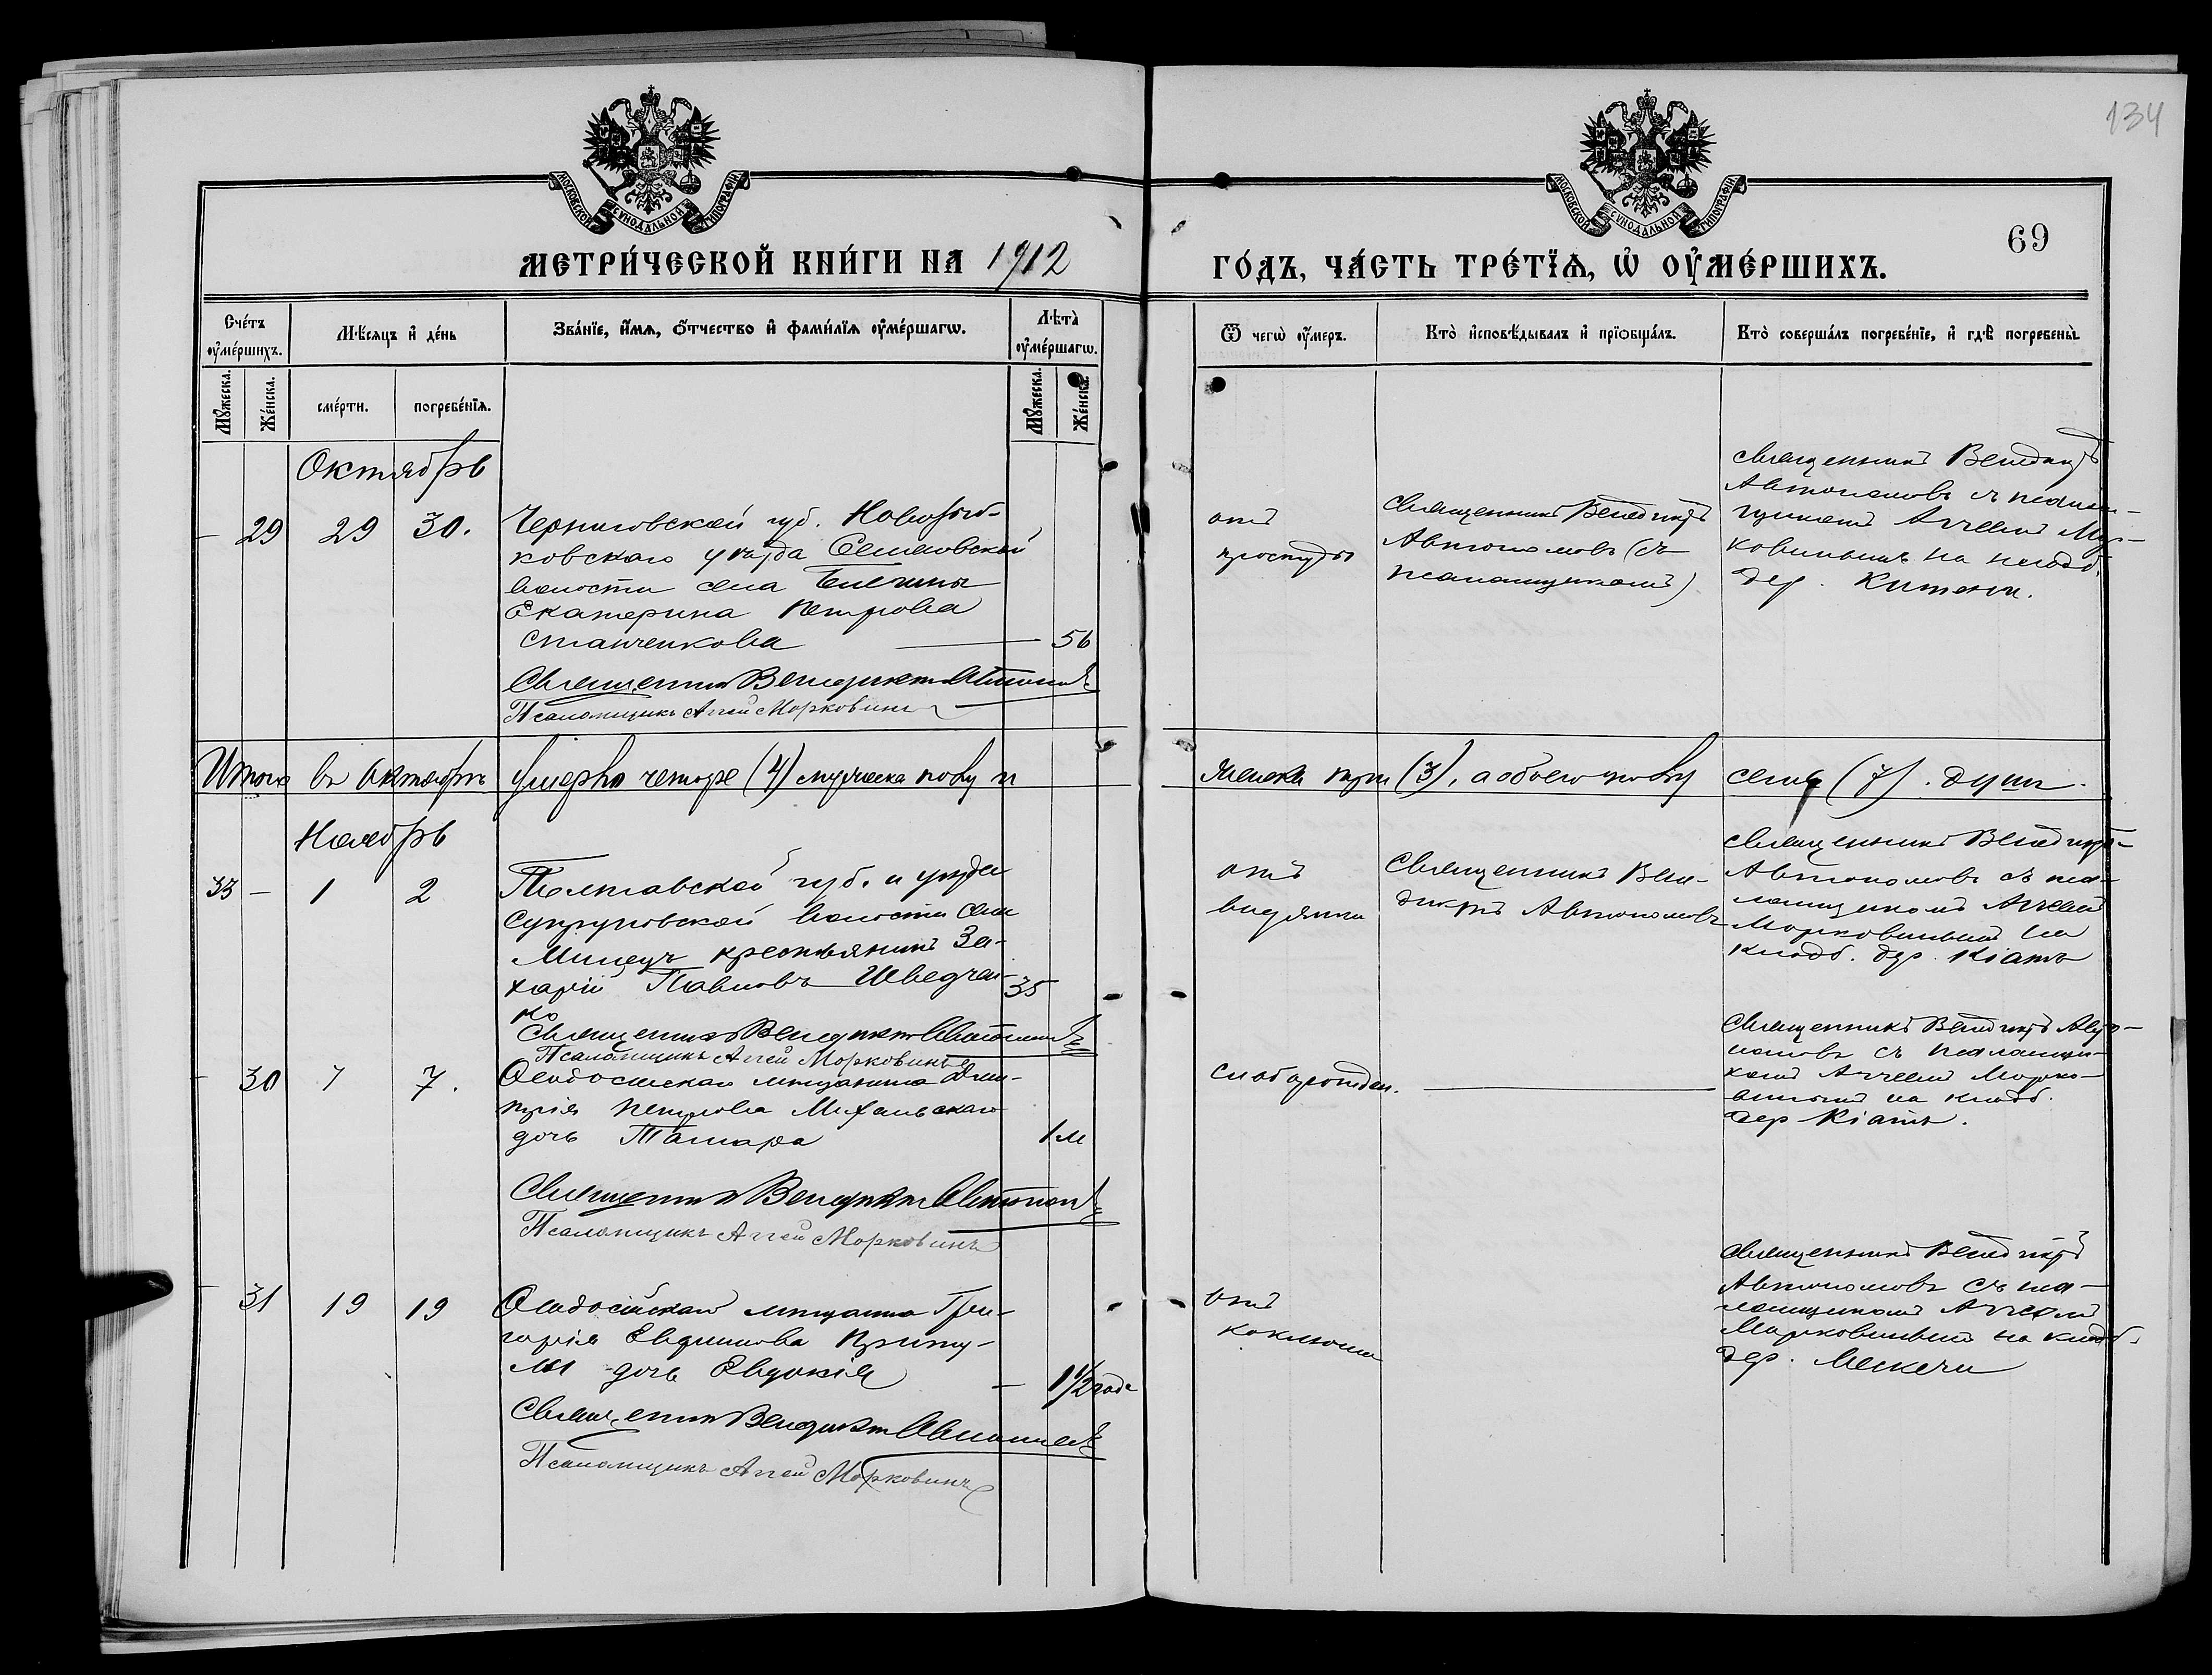 134
МОСКОВСКОЙ СѴНОДАЛЬНОЙ ТИПОГРАФІИ
МОСКОВСКОЙ СѴНОДАЛЬНОЙ ТИПОГРАФІИ
69
МЕТРИ́ЧЕСКОЙ КНИ́ГИ НА 1912
ГО́ДЪ, ЧА́СТЬ ТРЕ́ТЇѦ, Ѡ҆ ОУ҆МЕ́РШИХЪ.
Сче́тъ оу҆ме́ршихъ.
Мѣ́сяцъ и҆ де́нь
Зва́нїе, и҆́мѧ, ѻ҆́тчество и҆ фами́лїѧ оу҆ме́ршагѡ.
Лѣ̑та оу҆ме́ршагѡ.
Ѿ чегѡ̀ оу҆́меръ.
Кто̀ и҆сповѣ́дывалъ и҆ прїѡбща́лъ.
Кто̀ соверша́лъ погребе́нїе, и҆ гдѣ̀ погребены̀.
Мꙋ́жеска.
Же́нска.
сме́рти.
погребе́нїѧ.
Мꙋ́жеска.
Же́нска.
Октябрь
- 29 29 30.
Черниговской губ. Новозыб-
ковскаго уѣзда Семеновской
волости села
Екатерина Петрова
Станченкова — 56
Священникъ Венедиктъ Автономовъ
Псаломщикъ Аггей Морковинъ
отъ
простуды
Священникъ Венедиктъ
Автономовъ (съ
псаломщикомъ)
Священникъ Венедиктъ
Автономовъ съ псалом-
щикомъ Аггеемъ Мор-
ковинымъ на кладб.
дер. Китень.
Итого въ Октябрѣ умерло четыре (4) мужеска полу и
женска три (3), а обоего полу семь (7) душъ.
Ноябрь
33 - 1 2
Полтавской губ. и уѣзда
Супруновской волости села
Минецъ крестьянинъ За-
харій Павловъ Шведчен-
ко 35
Священникъ Венедиктъ Автономовъ
Псаломщикъ Аггей Морковинъ
отъ
водянки
Священникъ Вене-
диктъ Автономовъ
Священникъ Венедиктъ
Автономовъ съ пса-
ломщикомъ Аггеемъ
Морковинымъ на
кладб. дер. Кіятъ
- 30 7 7.
Ѳеодосійскаго мѣщанина Дми-
трія Петрова Михальскаго
дочь Тамара 1 м
Священникъ Венедиктъ Автономовъ
Псаломщикъ Аггей Морковинъ
слаборожден. —
Священникъ Венедиктъ Авто-
номовъ съ псаломщи-
комъ Аггеемъ Морко-
винымъ на кладб.
дер Кіятъ.
- 31 19 19
Ѳеодосійскаго мѣщанина Гри-
горія Евфимова
дочь Евдокія — 1 1/2 года
Священникъ Венедиктъ Автономовъ
Псаломщикъ Аггей Морковинъ
отъ
коклюша
Священникъ Венедиктъ
Автономовъ съ пса-
ломщикомъ Аггеемъ
Морковинымъ на кладб.
дер.